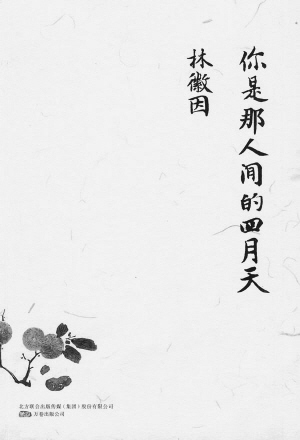 你是那人间的四月天
林徽因
北方联合出版传媒（集团）股份有限公司
万卷出版公司